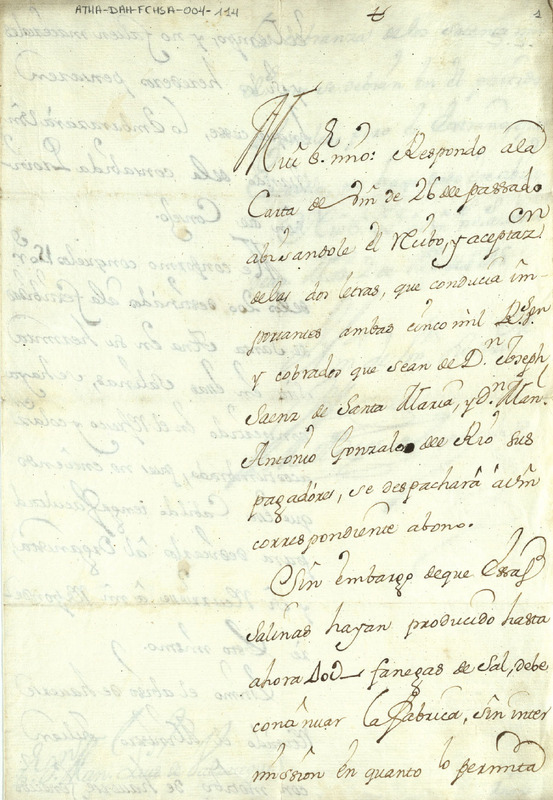 ATHA-DAH-FCHSA-004-114
1
Muy Sr. mío: Respondo a la
Carta de Vm de 26 de passado
abisandole el recibo, y aceptazon
de las dos letras, que conducia im-
portantes ambas cinco mil Rs. en
y cobrados que sean de Dn. Joseph
Saenz de Santa Maria, y Dn. Man.
Antonio Gonzalo de Rio sus
pagadores, se despachará á Vm
correspondiente abono.
Sin embargo de que Essas
Salinas hayan producido hasta
ahora fanegas de Sal, debe
continuar la fabrica, sin inter
mission en quanto lo permita